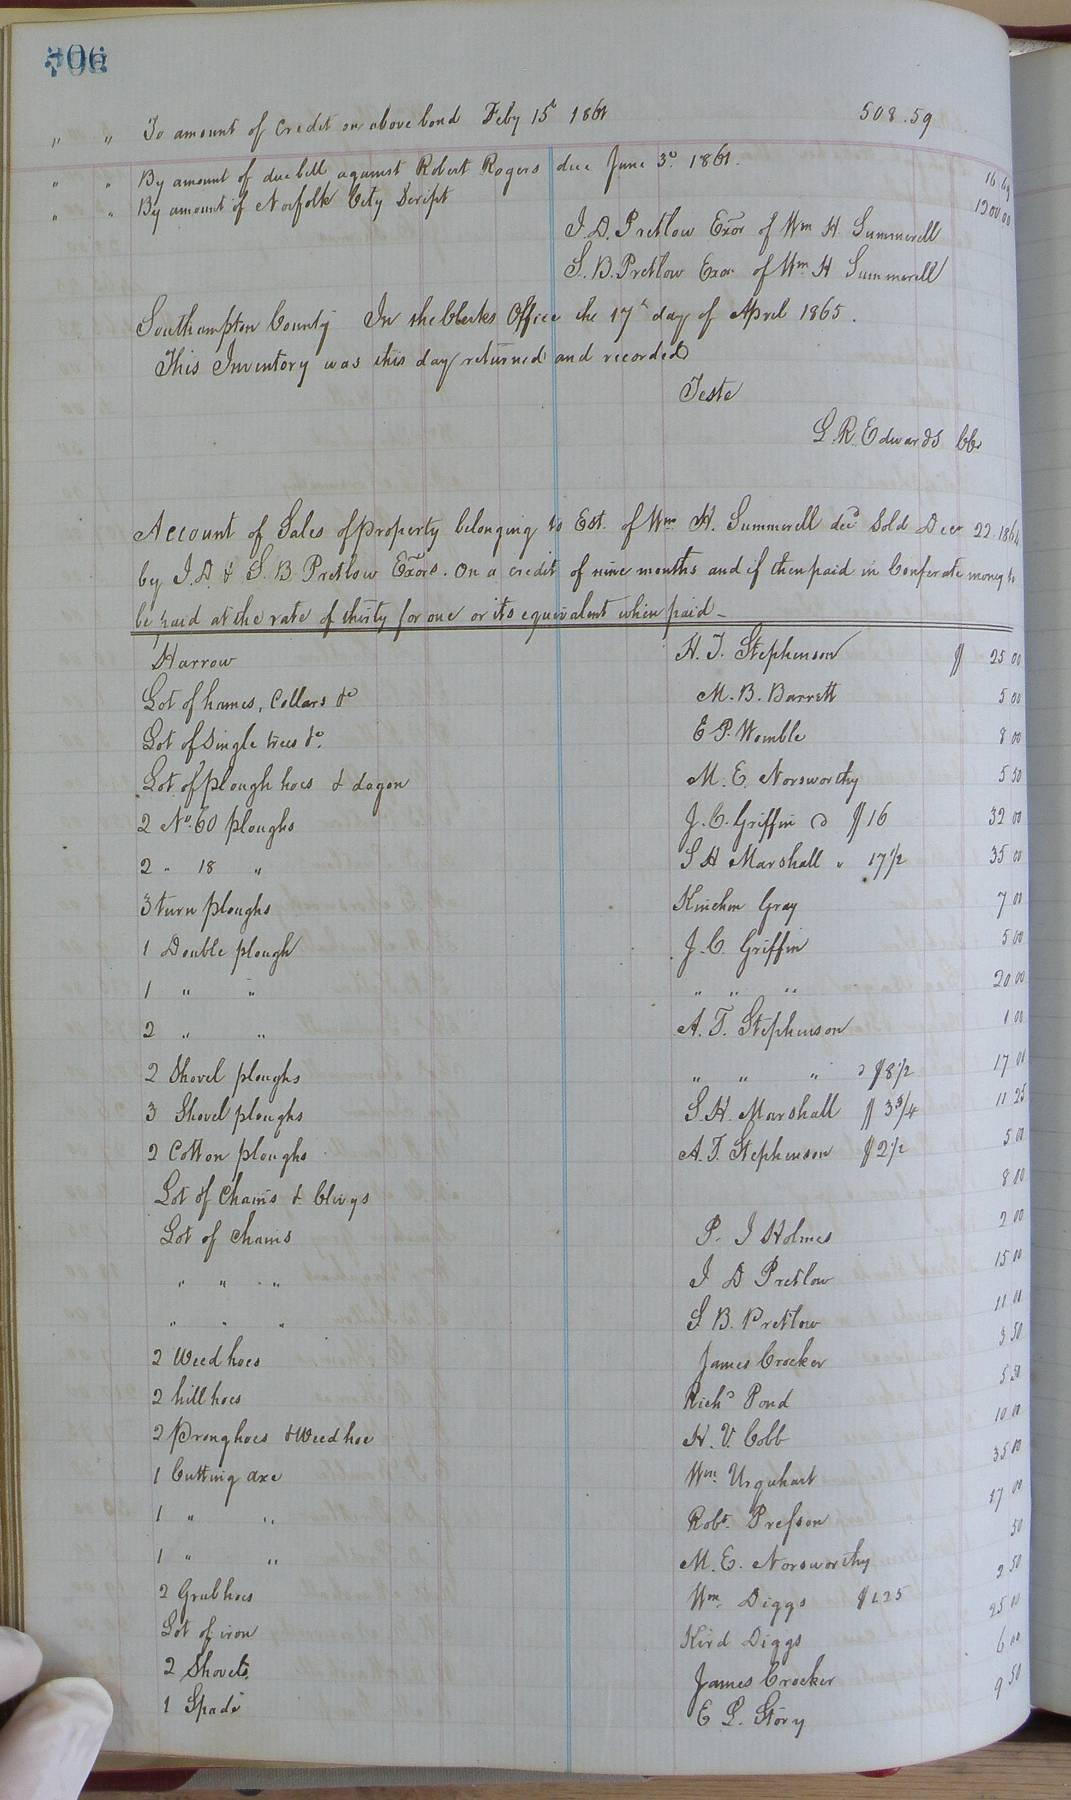 506
" " To amount of Credit on above bond Feby 15th 1861 508.59
" " By amount of due bill against Robert Rogers due June 3d 1861. 16 69
" " By amount of Norfolk City Script 1200.00
J. D. Pretlow Exor of Wm H. Summerell
S. B. Pretlow Exor of Wm H Summerell
Southampton County In the Clerks Office the 17th day of April 1865.
This Inventory was this day returned and recorded
Teste
L. R. Edwards Clk
Account of Sales of property belonging to Est. of Wm H. Summerell decd Sold Decr 22. 1864
by J. D & S. B. Pretlow Exors. On a credit of nine months and if then paid in Conferate money to
be paid at the rate of thirty for one or its equivalent when paid—
Harrow H. T. Stephenson $ 25 00
Lot of hames, Collars &c M. B. Barrett 5 00
Lot of Single trees &c. E P. Womble 8 00
Lot of plough hoes & dagon M. E. Norsworthy 5 50
2 No. 60 ploughs J. C. Griffin @ $16 32 00
2 " 18 " S H Marshall " 17 1/2 35 00
3 turn ploughs Kinchen Gray 7 00
1 Double plough J. C. Griffin 5 00
1 " " " " " 20 00
2 " " A. T. Stephenson 1 00
2 Shovel ploughs " " " @ $8 1/2 17 00
3 Shovel ploughs S. H. Marshall $ 3 3/4 11 25
2 Cotton ploughs A. T. Stephenson $2 1/2 5 00
Lot of Chains & Clivys 8 00
Lot of Chains P. J Holmes 2 00
" " " J D Pretlow 15 00
" " " S B. Pretlow 11 00
2 Weed hoes James Crocker 3 50
2 hill hoes Richd Pond 5 50
2 Prong hoes & Weed hoe H. V. Cobb 10 00
1 Cutting axe Wm. Urquhart 35 00
1 " " Robt. Presson 17 00
1 " " M. E. Norsworthy 50
2 Grub hoes Wm. Diggs $1.25 2 50
Lot of iron Kird Diggs 25 00
2 Shovels James Crocker 6 00
1 Spade E L. Story 9 50